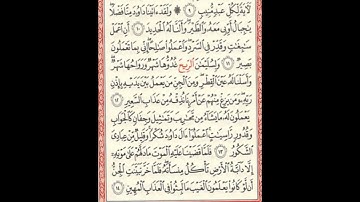 لَآيَةً لِّكُلِّ عَبْدٍ مُّنِيبٍ ﴿٩﴾ ۞ وَلَقَدْ ءَاتَيْنَا دَاوُۥدَ مِنَّا فَضْلًا
يَـٰجِبَالُ أَوِّبِى مَعَهُۥ وَٱلطَّيْرَ وَأَلَنَّا لَهُ ٱلْحَدِيدَ ﴿١٠﴾ أَنِ ٱعْمَلْ
سَـٰبِغَـٰتٍ وَقَدِّرْ فِى ٱلسَّرْدِ وَٱعْمَلُوا۟ صَـٰلِحًا إِنِّى بِمَا تَعْمَلُونَ
بَصِيرٌ ﴿١١﴾ وَلِسُلَيْمَـٰنَ ٱلرِّيحَ غُدُوُّهَا شَهْرٌ وَرَوَاحُهَا شَهْرٌ
وَأَسَلْنَا لَهُۥ عَيْنَ ٱلْقِطْرِ وَمِنَ ٱلْجِنِّ مَن يَعْمَلُ بَيْنَ يَدَيْهِ بِإِذْنِ
رَبِّهِۦ وَمَن يَزِغْ مِنْهُمْ عَنْ أَمْرِنَا نُذِقْهُ مِنْ عَذَابِ ٱلسَّعِيرِ ﴿١٢﴾
يَعْمَلُونَ لَهُۥ مَا يَشَآءُ مِن مَّحَـٰرِيبَ وَتَمَـٰثِيلَ وَجِفَانٍ كَٱلْجَوَابِ
وَقُدُورٍ رَّاسِيَـٰتٍ ٱعْمَلُوٓا۟ ءَالَ دَاوُۥدَ شُكْرًا وَقَلِيلٌ مِّنْ عِبَادِىَ
ٱلشَّكُورُ ﴿١٣﴾ فَلَمَّا قَضَيْنَا عَلَيْهِ ٱلْمَوْتَ مَا دَلَّهُمْ عَلَىٰ مَوْتِهِۦٓ
إِلَّا دَآبَّةُ ٱلْأَرْضِ تَأْكُلُ مِنسَأَتَهُۥ فَلَمَّا خَرَّ تَبَيَّنَتِ ٱلْجِنُّ
أَن لَّوْ كَانُوا۟ يَعْلَمُونَ ٱلْغَيْبَ مَا لَبِثُوا۟ فِى ٱلْعَذَابِ ٱلْمُهِينِ ﴿١٤﴾